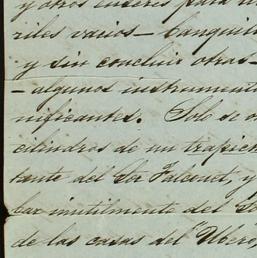 y otros enseres para
riles vacios - banquit
y sin concluir otras -
- algunos instrument
nificantes. Solo se
cilindros de un trapich
tante del Sor Falconet, y
inutilmente del
de las casas del "Ubero,